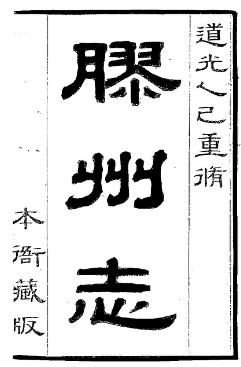 道光乙巳重脩
膠州志
本衙藏版